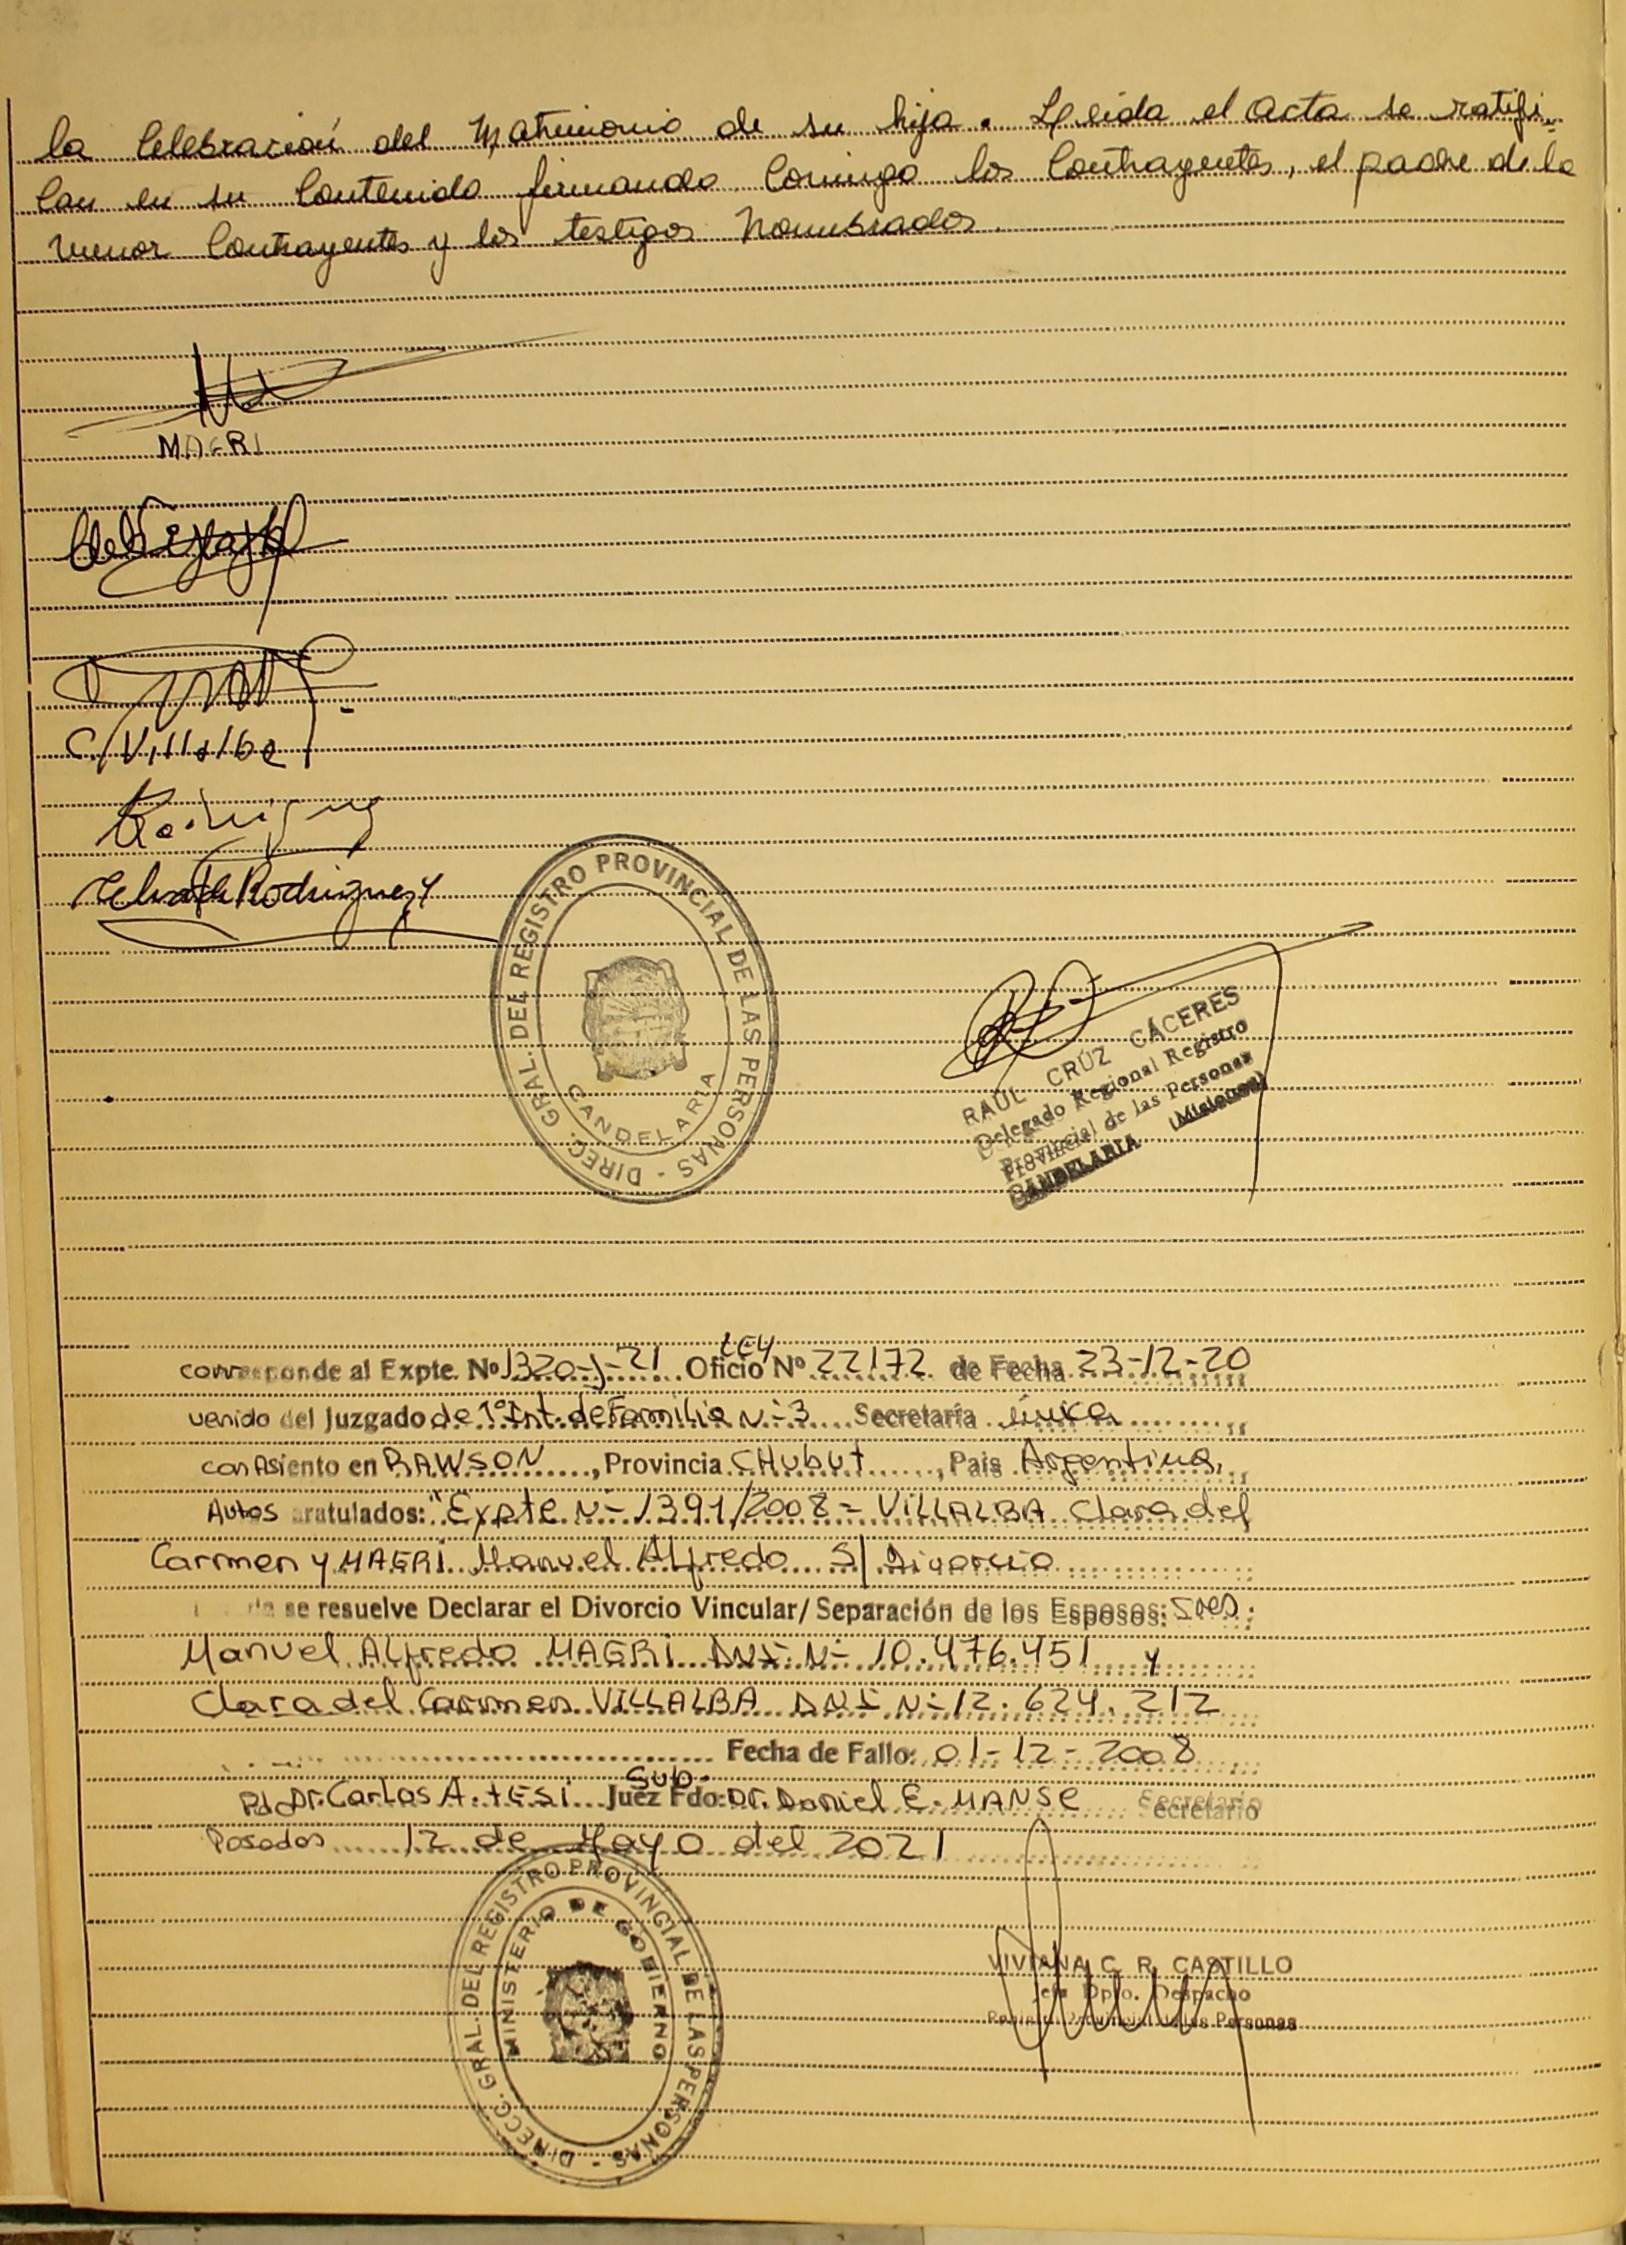 la Celebración del Matrimonio de su hija. Leida el acta se ratifi-
can en su Contenido firmando Conmigo los Contrayentes, el padre de la
menor Contrayentes y los testigos Nombrados.
MAGRI
C. Villalba
Rodriguez
de Rodriguez
DIREC. GRAL. DEL REGISTRO PROVINCIAL DE LAS PERSONAS -
CANDELARIA
RAUL CRUZ CÁCERES
Delegado Regional Registro
Provincial de las Personas
CANDELARIA (Misiones)
LEY
corresponde al Expte. Nº 1320-J-21 Oficio Nº 22172 de Fecha 23-12-20
venido del Juzgado de 1º Int. de Familia Nº 3 Secretaría única
con Asiento en RAWSON, Provincia CHubut, Pais Argentina,
Autos aratulados: "Expte Nº 1391/2008 - VILLALBA Clara del
Carmen y MAGRI Manuel Alfredo S/ Divorcio
se resuelve Declarar el Divorcio Vincular/ Separación de los Esposos: Sres.
Manuel Alfredo MAGRI DNI Nº 10.476.451 y
Clara del Carmen VILLALBA DNI Nº 12.624.212
Fecha de Fallo: 01-12-2008
Sub.
Fdo Dr. Carlos A. TESI Juez Fdo: Dr. Daniel E. MANSE Secretario
Posadas 12 de Mayo del 2021
DIRECC. GRAL. DEL REGISTRO PROVINCIAL DE LAS PERSONAS -
MINISTERIO DE GOBIERNO
VIVIANA C. R. CASTILLO
Jefa Dpto. Despacho
Registro Provincial de las Personas